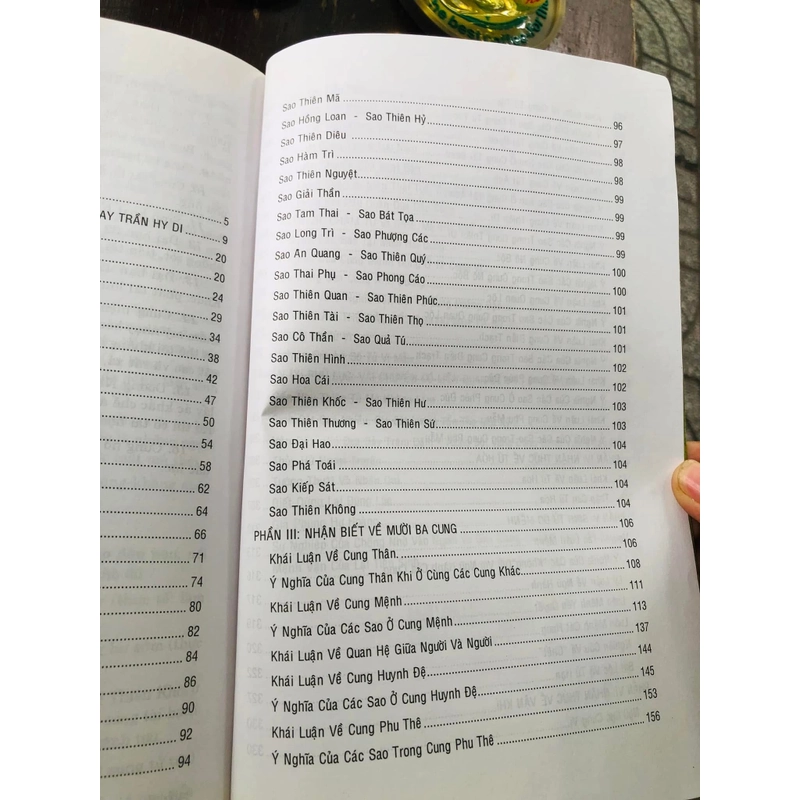 5
AY TRẦN HY DI ........ 9
20
20
24
29
34
38
42
47
50
54
58
62
64
66
71
74
80
82
84
86
90
92
94
Sao Thiên Mã ........ 96
Sao Hồng Loan - Sao Thiên Hỷ ........ 97
Sao Thiên Diêu ........ 98
Sao Hàm Trì ........ 98
Sao Thiên Nguyệt ........ 99
Sao Giải Thần ........ 99
Sao Tam Thai - Sao Bát Tọa ........ 99
Sao Long Trì - Sao Phượng Các ........ 99
Sao An Quang - Sao Thiên Quý ........ 100
Sao Thai Phụ - Sao Phong Cáo ........ 100
Sao Thiên Quan - Sao Thiên Phúc ........ 101
Sao Thiên Tài - Sao Thiên Thọ ........ 101
Sao Cô Thần - Sao Quả Tú ........ 101
Sao Thiên Hình ........ 102
Sao Hoa Cái ........ 102
Sao Thiên Khốc - Sao Thiên Hư ........ 103
Sao Thiên Thương - Sao Thiên Sứ ........ 103
Sao Đại Hao ........ 104
Sao Phá Toái ........ 104
Sao Kiếp Sát ........ 104
Sao Thiên Không ........ 104
PHẦN III: NHẬN BIẾT VỀ MƯỜI BA CUNG ........ 106
Khái Luận Về Cung Thân. ........ 106
Ý Nghĩa Của Cung Thân Khi Ở Cùng Các Cung Khác ........ 108
Khái Luận Về Cung Mệnh ........ 111
Ý Nghĩa Của Các Sao Ở Cung Mệnh ........ 113
Khái Luận Về Quan Hệ Giữa Người Và Người ........ 137
Khái Luận Về Cung Huynh Đệ ........ 144
Ý Nghĩa Của Các Sao Ở Cung Huynh Đệ ........ 145
Khái Luận Về Cung Phu Thê ........ 153
Ý Nghĩa Của Các Sao Trong Cung Phu Thê ........ 156